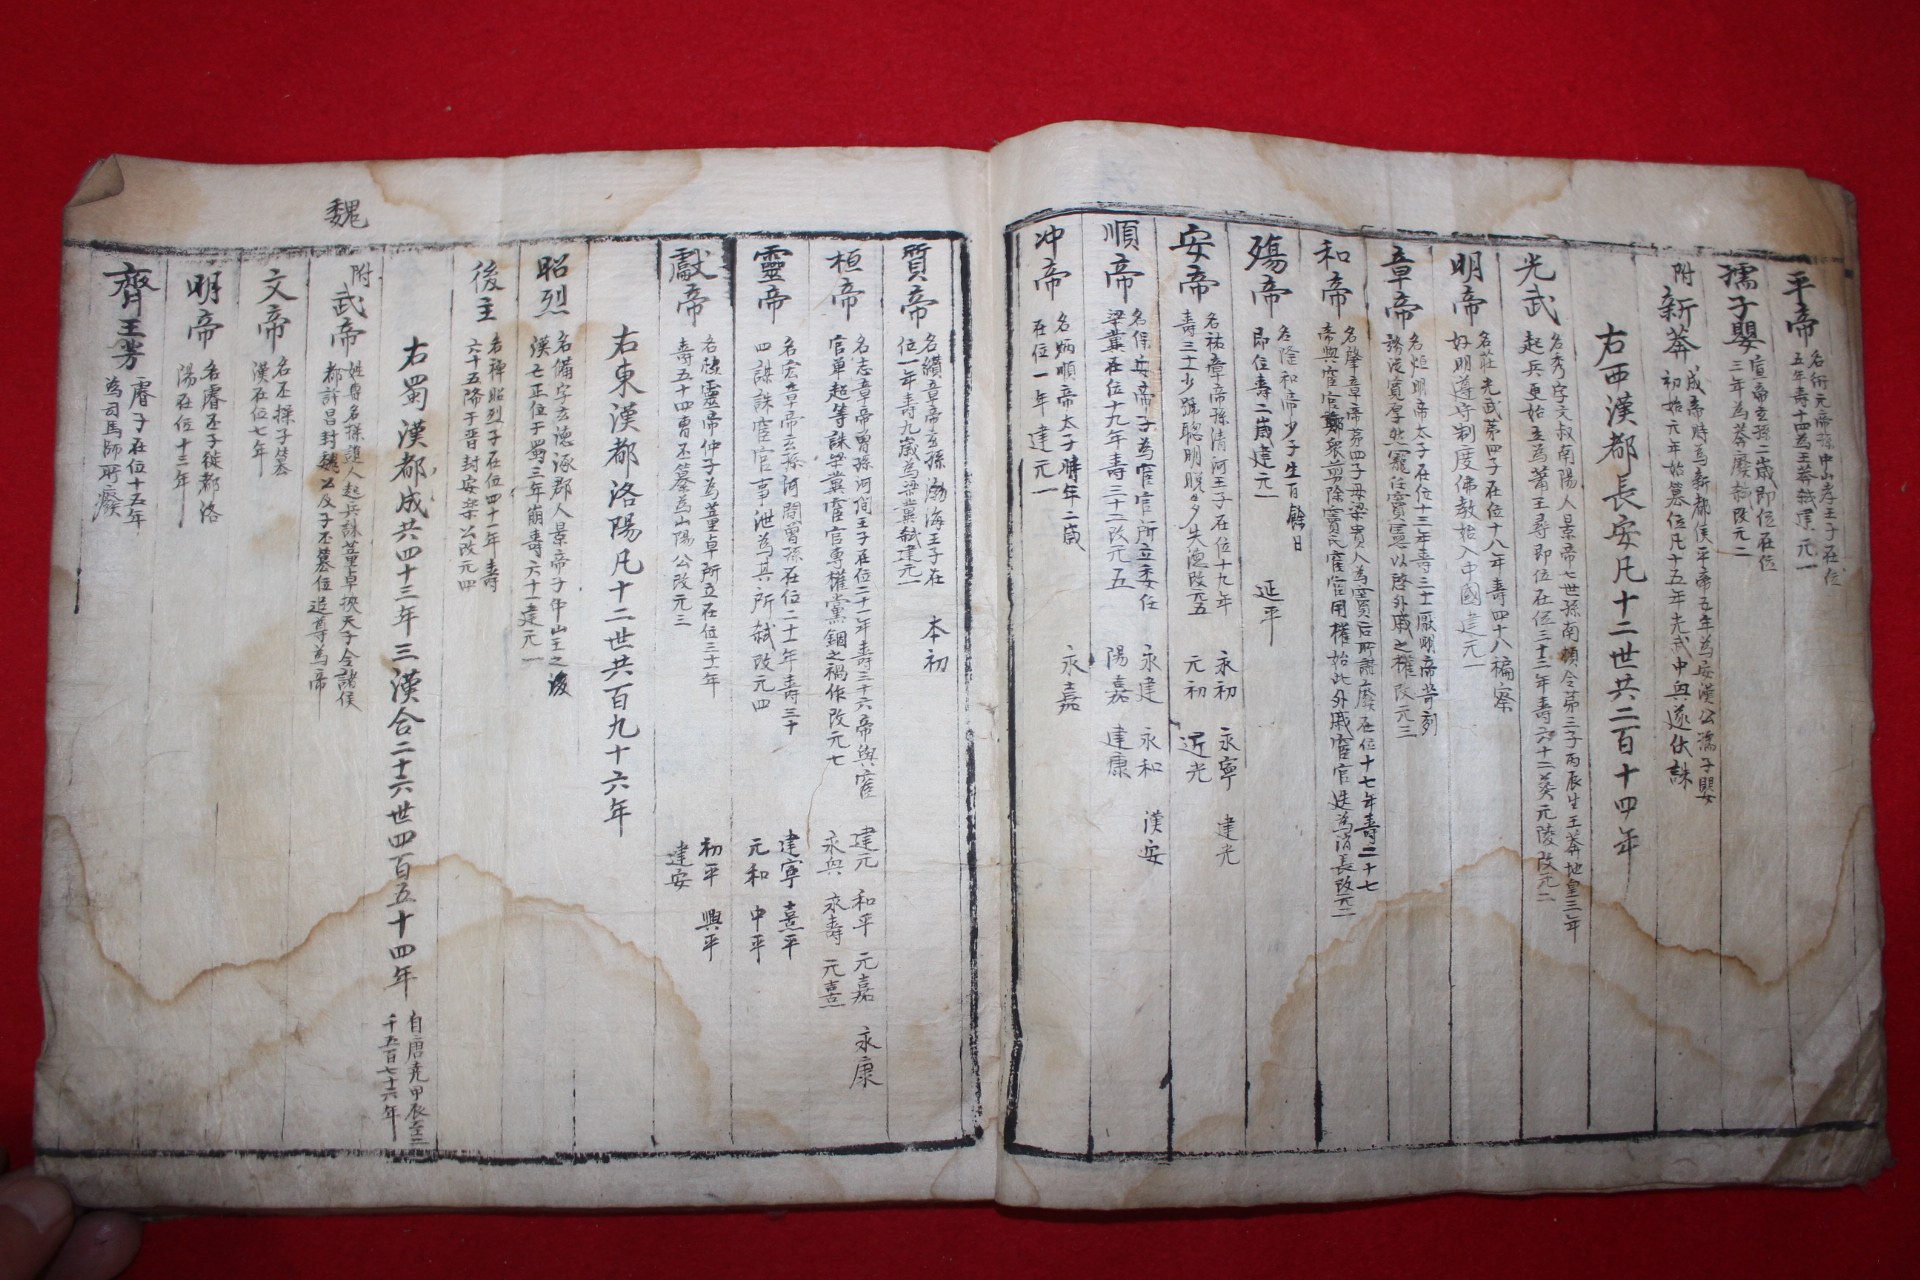 平帝 名衎元帝孫中山孝王子在位
五年壽十四為王莽弒建元一
孺子嬰 宣帝玄孫二歲即位在位
三年為莽廢弒改元二
附新莽 成帝時為新都侯平帝五年為安漢公孺子嬰
初始元年始簒位凡十五年光武中興遂伏誅
右西漢都長安凡十二世共二百十四年
光武 名秀字文叔南陽人景帝七世孫南頓令第三子丙辰生王莽地皇三年
起兵更始立為蕭王尋即位在位三十三年壽六十二葬元陵改元二
明帝 名莊光武第四子在位十八年壽四十八褊察
好明遵守制度佛教始入中國建元一
章帝 名炟明帝太子在位十三年壽三十二厭明帝苛刻
務從寬厚然寵任竇憲以啓外戚之權改元三
和帝 名肇章帝第四子母梁貴人為竇后所譖廢在位十七年壽二十七
帝與宦官鄭衆剪除竇氏宦官用權始此外戚宦官迭為消長改元二
殤帝 名隆和帝少子生百餘日
即位壽二歲建元一 延平
安帝 名祐章帝孫清河王子在位十九年 永初 永寧 建光
壽三十二少號聰明晩多失德改元五 元初 延光
順帝 名保安帝子為宦官所立委任 永建 永和 漢安
梁冀在位十九年壽三十二改元五 陽嘉 建康
冲帝 名炳順帝太子時年二歲
在位一年建元一 永嘉
質帝 名纘章帝玄孫渤海王子在
位一年壽九歲為梁冀弒建元一 本初
桓帝 名志章帝曾孫河間王子在位二十一年壽三十六帝與宦 建元 和平 元嘉 永康
官單超等誅梁冀宦官專權黨錮之禍作改元七 永興 永壽 元熹
靈帝 名宏章帝玄孫河間曾孫在位二十二年壽三十 建寧 熹平
四謀誅宦官事泄為其所弒改元四 元和 中平
獻帝 名協靈帝仲子為董卓所立在位三十一年 初平 興平
壽五十四曹丕簒為山陽公改元三 建安
右東漢都洛陽凡十二世共百九十六年
昭烈 名備字玄德涿郡人景帝子中山王之後
漢亡正位于蜀三年崩壽六十三建元一
後主 名禪昭烈子在位四十一年壽
六十五降于晋封安樂公改元四
右蜀漢都成共四十三年三漢合二十六世四百五十四年 自唐尭甲辰至二
千五百七十六年
魏
附武帝 姓曺名操譙人起兵誅董卓挾天子令諸侯
都許昌封魏公及子丕簒位追尊為帝
文帝 名丕操子簒
漢在位七年
明帝 名睿丕子徙都洛
陽在位十三年
齊王芳 睿子在位十五年
為司馬師所廢